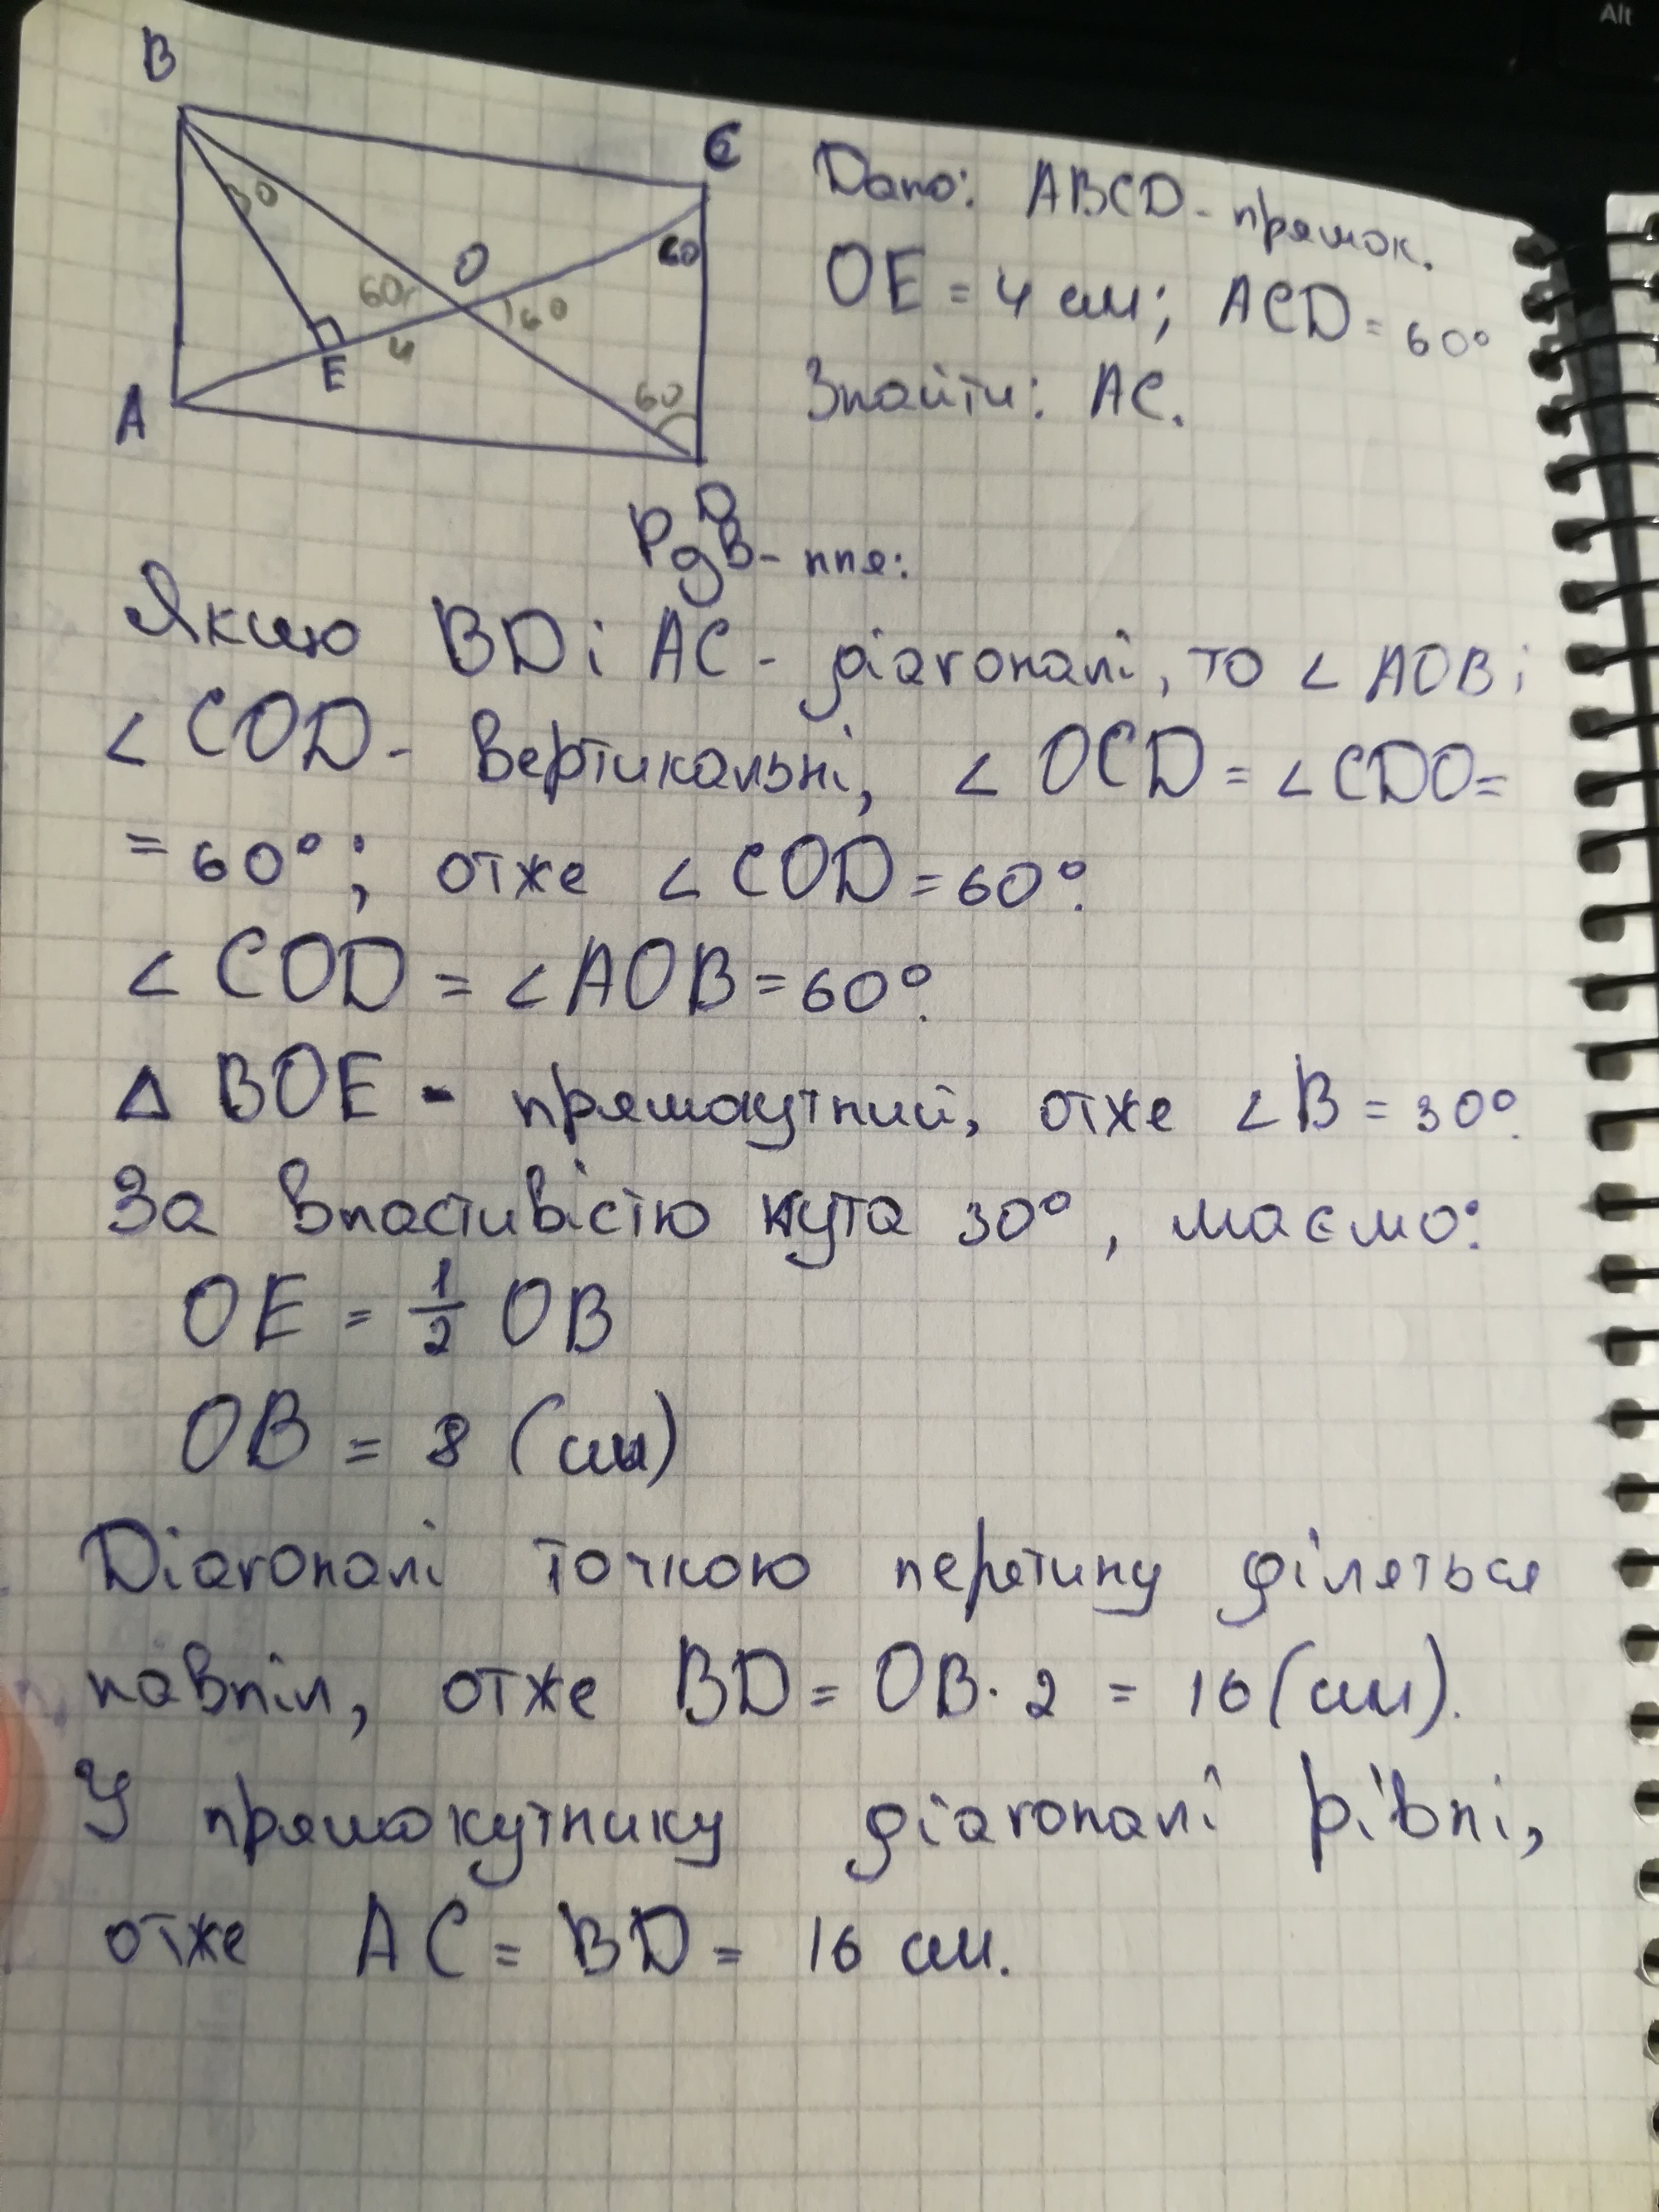 Alt
B
C
30
O
60
60
60
E
4
60
A
D
Дано: ABCD - прямок.
OE = 4 см; ACD = 60°
Знайти: AC.
Розв-ння:
Якщо BD і AC - діагоналі, то ∠ AOB і
∠ COD - вертикальні, ∠ OCD = ∠ CDO =
= 60°; отже ∠ COD = 60°.
∠ COD = ∠ AOB = 60°.
Δ BOE - прямокутний, отже ∠ B = 30°.
За властивістю кута 30°, маємо:
OE = 1/2 OB
OB = 8 (см)
Діагоналі точкою перетину діляться
навпіл, отже BD = OB · 2 = 16 (см).
У прямокутнику діагоналі рівні,
отже AC = BD = 16 см.